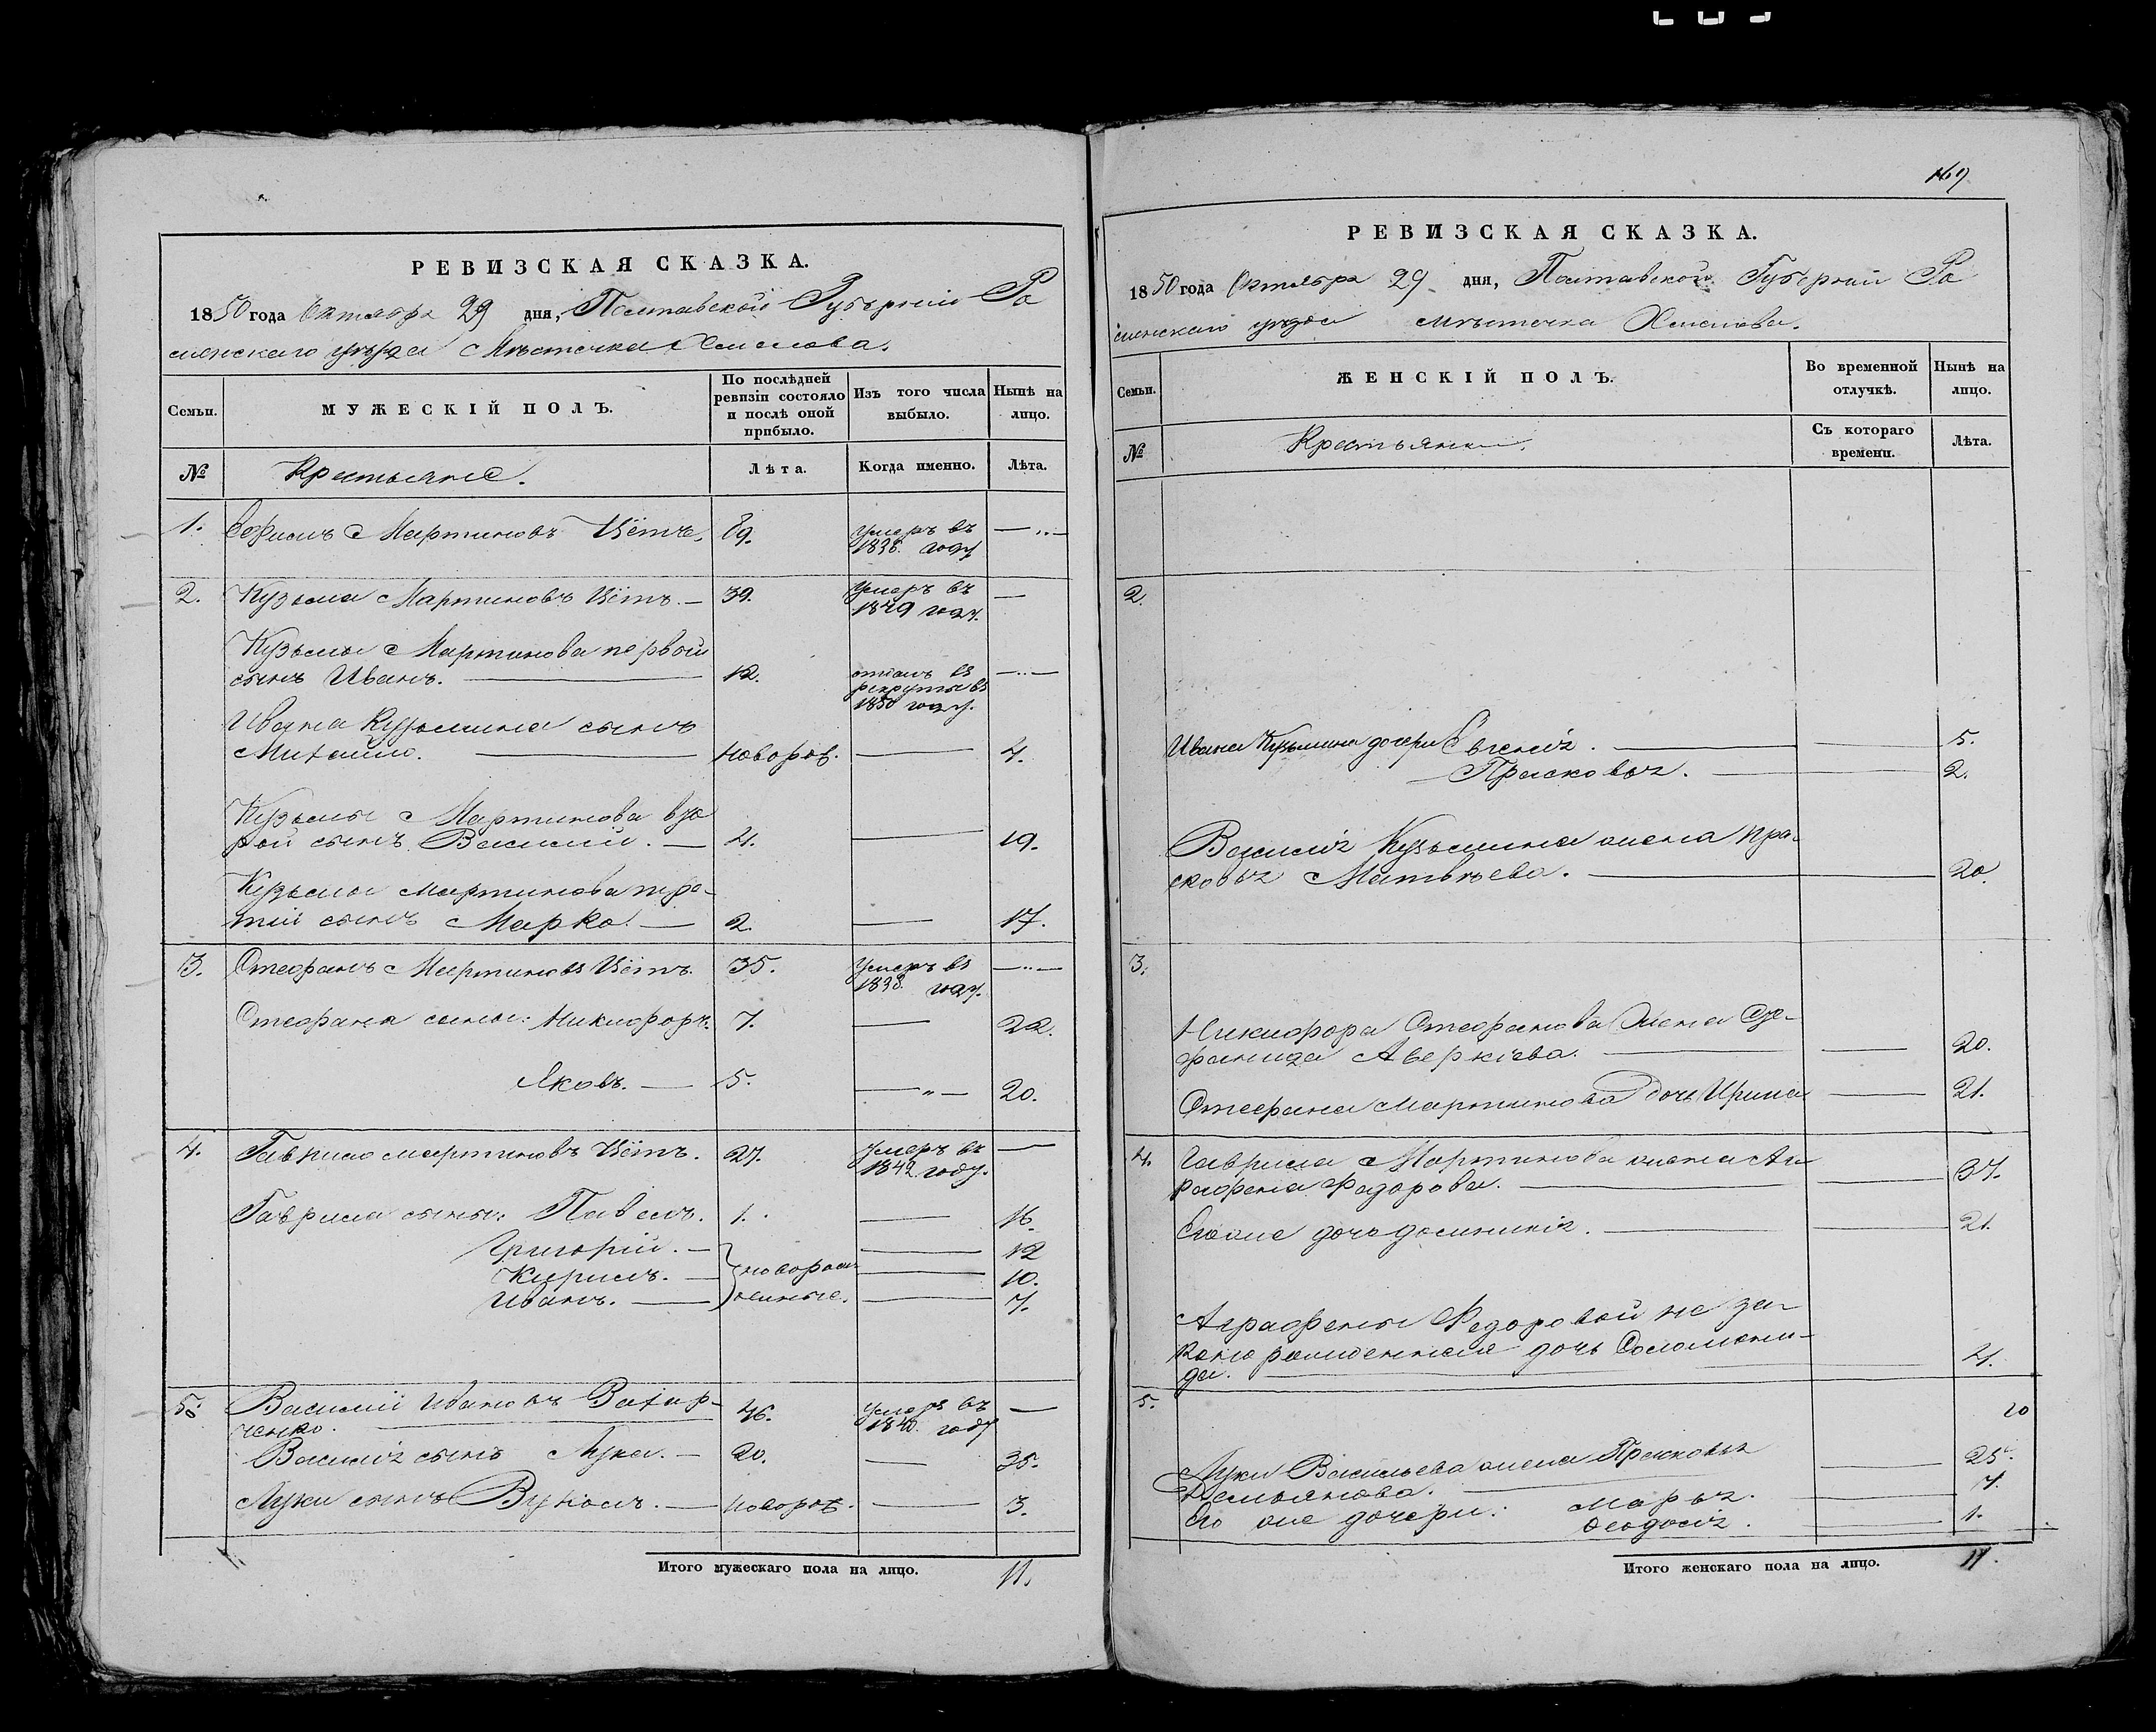 РЕВИЗСКАЯ СКАЗКА.
1850 года Октября 29 дня, Полтавской Губернии Ро
менскаго уѣзда Мѣстечка Хмелова.
Семьи.
МУЖЕСКІЙ ПОЛЪ.
По послѣдней ревизіи состояло и послѣ оной прибыло.
Изъ того числа выбыло.
Нынѣ на лицо.
№
Крестьяне.
Лѣта.
Когда именно.
Лѣта.
1. Мартиновъ 89. умеръ въ 1838. году —„—
2. Кузьма Мартиновъ — 39. Умеръ въ 1849 году. —
Кузьмы Мартинова первой
сынъ Иванъ. — 12. въ рекруты въ 1850 году. —„—
Ивана Кузьмина сынъ
Михайло. — новорож. — 4.
Кузьмы Мартинова вто
рой сынъ Василий. — 4. — 19.
Кузьмы Мартинова тре-
тій сынъ Марко. — 2. — 17.
3. Стефанъ Мартиновъ 35. Умеръ въ 1838. году. —„—
Стефана сыны: Никифоръ. 7. — 22.
Яковъ. — 5. —„— 20.
4. Гаврило Мартиновъ 27. умеръ въ 1842 году. —
Гаврила сыны: Павелъ. 1. — 16.
Григорій. — новорож — 12
Кирилъ. — денные. — 10.
Иванъ. — — 7.
5. Василий Ивановъ Вахар-
ченко. — 46. умеръ въ 1840. году —
Василія сынъ Лука. — 20. — 35.
Луки сынъ Вуколъ. — новорож. — 3.
Итого мужескаго пола на лицо. 11.
169
РЕВИЗСКАЯ СКАЗКА.
1850 года Октября 29 дня, Полтавской Губерніи Ро
менскаго уѣзда мѣстечка Хмелова.
Семьи.
ЖЕНСКІЙ ПОЛЪ.
Во временной отлучкѣ.
Нынѣ на лицо.
№
Крестьянки.
Съ котораго времени.
Лѣта.
2.
Ивана Кузьмина дочери Евгенія. — — 5.
Прасковья. — — 2.
Василія Кузьмина жена Пра-
сковья Матвѣева. — 20.
3.
Никифора Стефанова жена Сте-
фанида Аверкіева. — — 20.
Стефана Мартинова дочь Ирина — 21.
4. Гаврила Мартинова жена Аг-
рафена Фадорова. — — 37.
Егоже дочь Домникія. — — 21.
Аграфены Федоровой не за-
конно рожденная дочь Соломони-
да. — 4.
5.
20
Луки Васильева жена Прасковья
Демьянова. — — 25.
Его же дочери: Марья. — 7.
Феодосія. — 1.
Итого женскаго пола на лицо. 11.